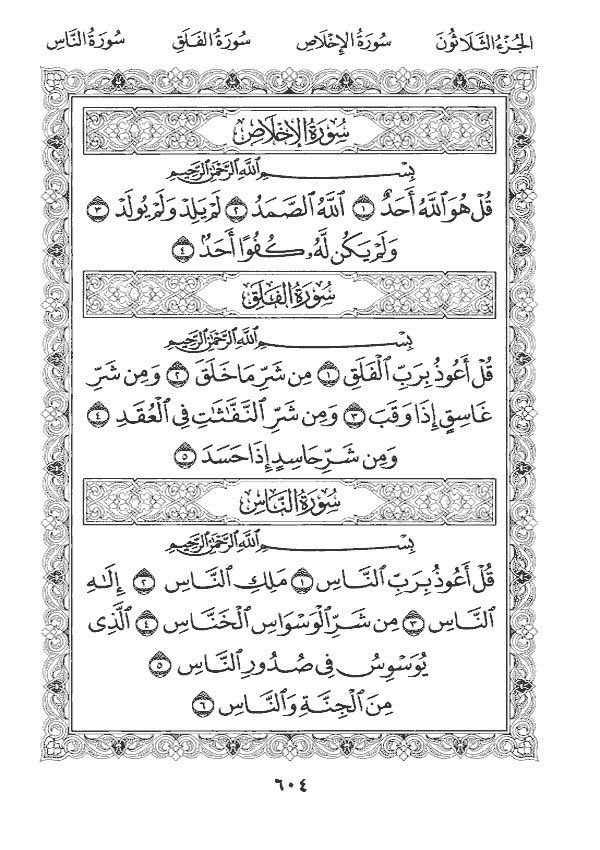 الجُزْءُ الثَّلَاثُونَ سُورَةُ الإِخْلَاصِ سُورَةُ الفَلَقِ سُورَةُ النَّاسِ
سُورَةُ الإِخْلَاصِ
بِسْمِ اللَّهِ الرَّحْمَٰنِ الرَّحِيمِ
قُلْ هُوَ ٱللَّهُ أَحَدٌ ١ ٱللَّهُ ٱلصَّمَدُ ٢ لَمْ يَلِدْ وَلَمْ يُولَدْ ٣
وَلَمْ يَكُن لَّهُۥ كُفُوًا أَحَدٌۢ ٤
سُورَةُ الفَلَقِ
بِسْمِ اللَّهِ الرَّحْمَٰنِ الرَّحِيمِ
قُلْ أَعُوذُ بِرَبِّ ٱلْفَلَقِ ١ مِن شَرِّ مَا خَلَقَ ٢ وَمِن شَرِّ
غَاسِقٍ إِذَا وَقَبَ ٣ وَمِن شَرِّ ٱلنَّفَّٰثَٰتِ فِى ٱلْعُقَدِ ٤
وَمِن شَرِّ حَاسِدٍ إِذَا حَسَدَ ٥
سُورَةُ النَّاسِ
بِسْمِ اللَّهِ الرَّحْمَٰنِ الرَّحِيمِ
قُلْ أَعُوذُ بِرَبِّ ٱلنَّاسِ ١ مَلِكِ ٱلنَّاسِ ٢ إِلَٰهِ
ٱلنَّاسِ ٣ مِن شَرِّ ٱلْوَسْوَاسِ ٱلْخَنَّاسِ ٤ ٱلَّذِى
يُوَسْوِسُ فِى صُدُورِ ٱلنَّاسِ ٥
مِنَ ٱلْجِنَّةِ وَٱلنَّاسِ ٦
٦٠٤